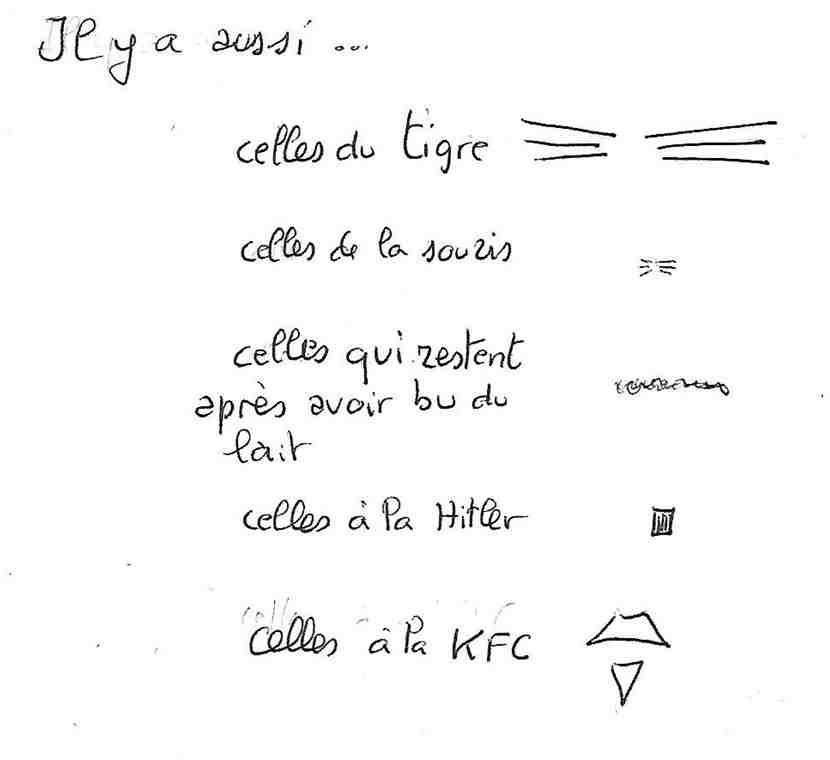 Il y a aussi ...
celles du tigre
celles de la souris
celles qui restent
après avoir bu du
lait
celles à la Hitler
celles à la KFC